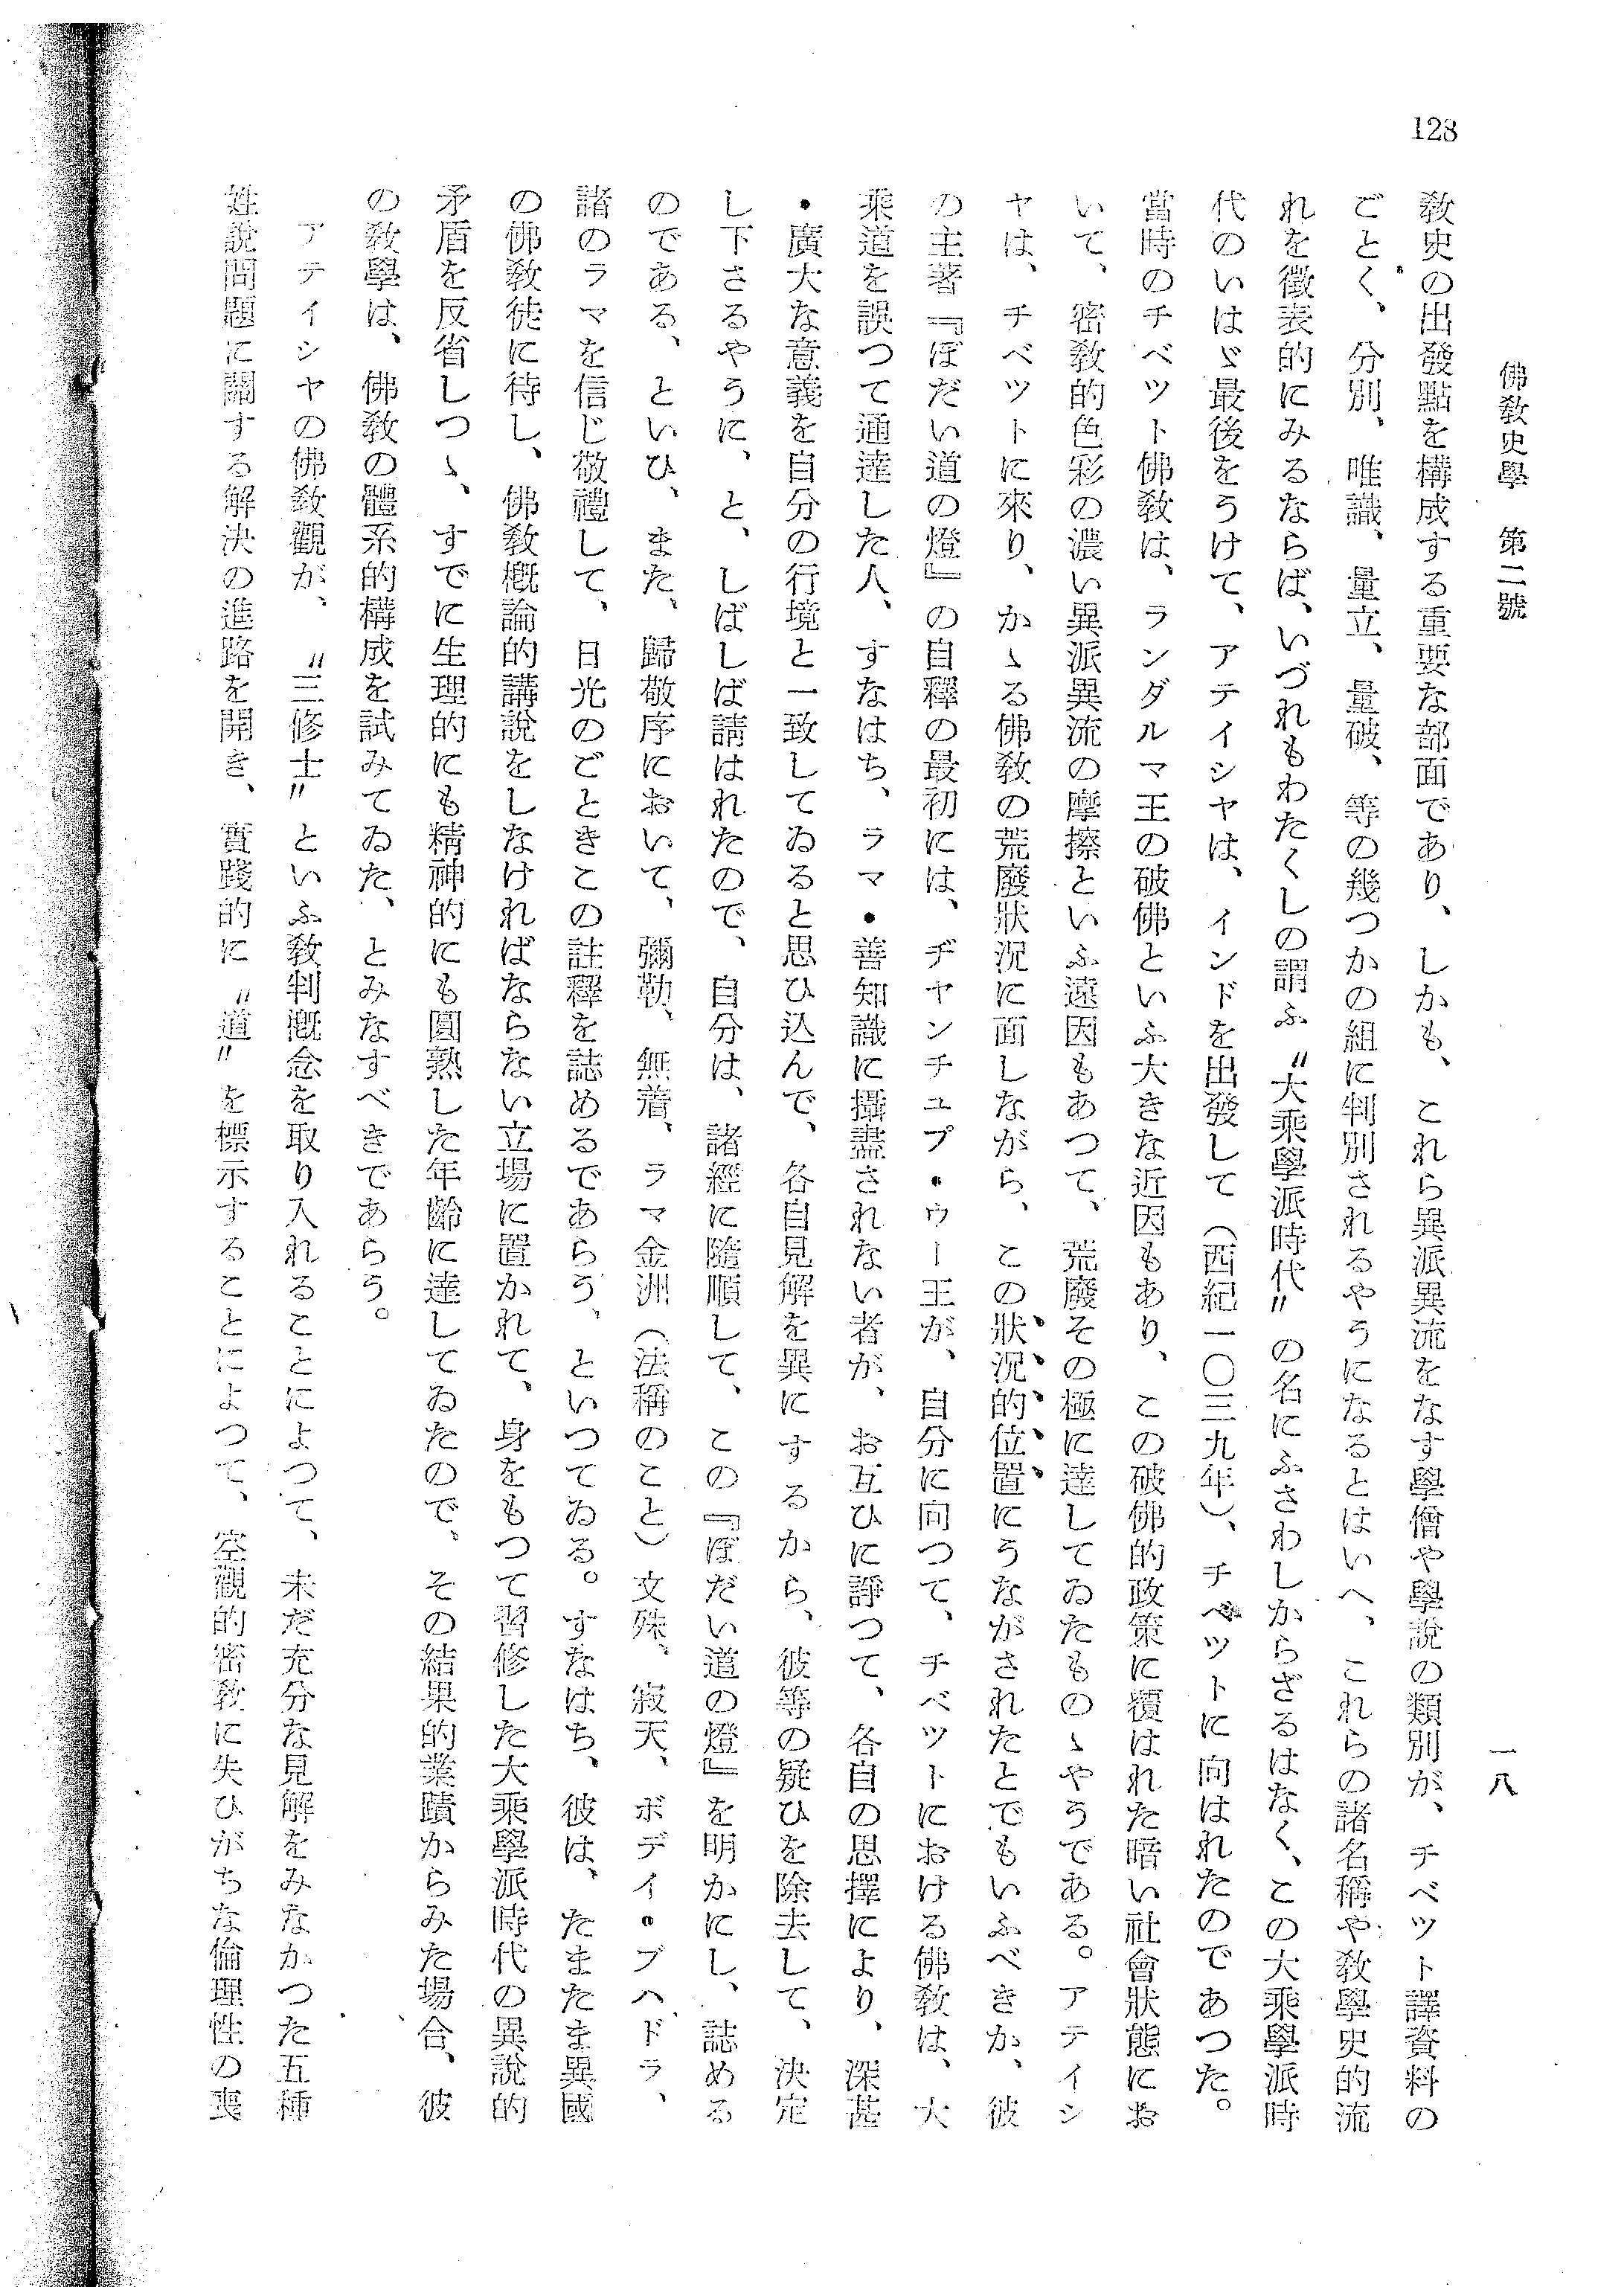 128
佛敎史學　第二號
一八
敎史の出發點を構成する重要な部面であり、しかも、これら異派異流をなす學僧や學說の類別が、チベット譯資料の
ごとく、分別、唯識、量立、量破、等の幾つかの組に判別されるやうになるとはいへ、これらの諸名稱や敎學史的流
れを徵表的にみるならば、いづれもわたくしの謂ふ〝大乘學派時代〟の名にふさわしからざるはなく、この大乘學派時
代のいはゞ最後をうけて、アテイシヤは、インドを出發して（西紀一〇三九年）、チベツトに向はれたのであつた。
當時のチベツト佛敎は、ランダルマ王の破佛といふ大きな近因もあり、この破佛的政策に覆はれた暗い社會狀態にお
いて、密敎的色彩の濃い異派異流の摩擦といふ遠因もあつて、荒廢その極に達してゐたものゝやうである。アテイシ
ヤは、チベツトに來り、かゝる佛敎の荒廢狀況に面しながら、この狀況的位置にうながされたとでもいふべきか、彼
の主著『ぼだい道の燈』の自釋の最初には、ヂヤンチュプ・ウー王が、自分に向つて、チベツトにおける佛敎は、大
乘道を誤つて通達した人、すなはち、ラマ・善知識に攝盡されない者が、お互ひに諍つて、各自の思擇により、深甚
・廣大な意義を自分の行境と一致してゐると思ひ込んで、各自見解を異にするから、彼等の疑ひを除去して、決定
し下さるやうに、と、しばしば請はれたので、自分は、諸經に隨順して、この『ぼだい道の燈』を明かにし、誌める
のである、といひ、また、歸敬序において、彌勒、無着、ラマ金洲（法稱のこと）文殊、寂天、ボデイ・ブハドラ、
諸のラマを信じ敬禮して、日光のごときこの註釋を誌めるであらう、といつてゐる。すなはち、彼は、たまたま異國
の佛敎徒に待し、佛敎槪論的講說をしなければならない立場に置かれて、身をもつて習修した大乘學派時代の異說的
矛盾を反省しつゝ、すでに生理的にも精神的にも圓熟した年齡に達してゐたので、その結果的業蹟からみた場合、彼
の敎學は、佛敎の體系的構成を試みてゐた、とみなすべきであらう。
アテイシヤの佛敎觀が、〝三修士〟といふ敎判槪念を取り入れることによつて、未だ充分な見解をみなかつた五種
姓說問題に關する解決の進路を開き、實踐的に〝道〟を標示することによつて、空觀的密敎に失ひがちな倫理性の喪